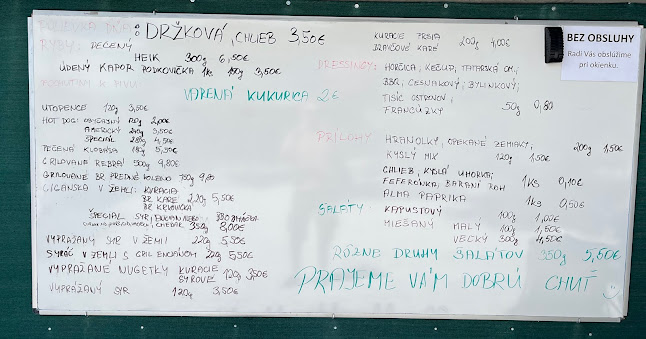 POLIEVKA DŇA: DRŽKOVÁ, CHLIEB 3,50€
RYBY: PEČENÝ
HEIK 300g 6,50€
ÚDENÝ KAPOR PODKOVIČKA 1ks 3,50€
POCHUTINY K PIVU:
VARENÁ KUKURICA 2€
UTOPENCE 120g 3,50€
HOT DOG: OBYČAJNÝ 2,00€
AMERICKÝ 3,50€
ŠPECIÁL 4,50€
PEČENÁ KLOBÁSA 5,50€
GRILOVANÉ REBRÁ 500g 9,80€
GRILOVANÉ BR. PREDNÉ KOLENO 750g
CIGÁNSKA V ŽEMLI: KURACIA
BR. KARÉ 220g 5,50€
BR. KRKOVIČKA
ŠPECIAL SYR, ENCIÁN
CHEDAR 350g 8,00€
VYPRÁŽANÝ SYR V ŽEMLI 220g 5,50€
SYRÁČ V ŽEMLI S GRIL. ENCIÁNOM 220g 5,50€
VYPRÁŽANÉ NUGETKY KURACIE
SYROVÉ 120g 3,50€
VYPRÁŽANÝ SYR 120g 3,50€
KURACIE PRSIA
BRAVČOVÉ KARÉ 200g 4,00€
DRESSINGY: HORČICA, KEČUP, TATARSKÁ OM.,
BBQ, CESNAKOVÝ, BYLINKOVÝ,
TISÍC OSTROVOV,
FRANCÚZKY 50g 0,80
PRÍLOHY: HRANOLKY, OPEKANÉ ZEMIAKY, 200g 1,50€
KYSLÝ MIX 120g 1,50€
CHLIEB, KYSLÁ UHORKA,
FEFERÓNKA, BARANÍ ROH 1ks 0,10€
ALMA PAPRIKA 1ks 0,50€
ŠALÁTY: KAPUSTOVÝ 100g 1,00€
MIEŠANÝ MALÝ 1,50€
VEĽKÝ 300g 4,50€
RÔZNE DRUHY ŠALÁTOV 350g 5,50€
PRAJEME VÁM DOBRÚ CHUŤ
BEZ OBSLUHY
Radi Vás obslúžime
pri okienku.